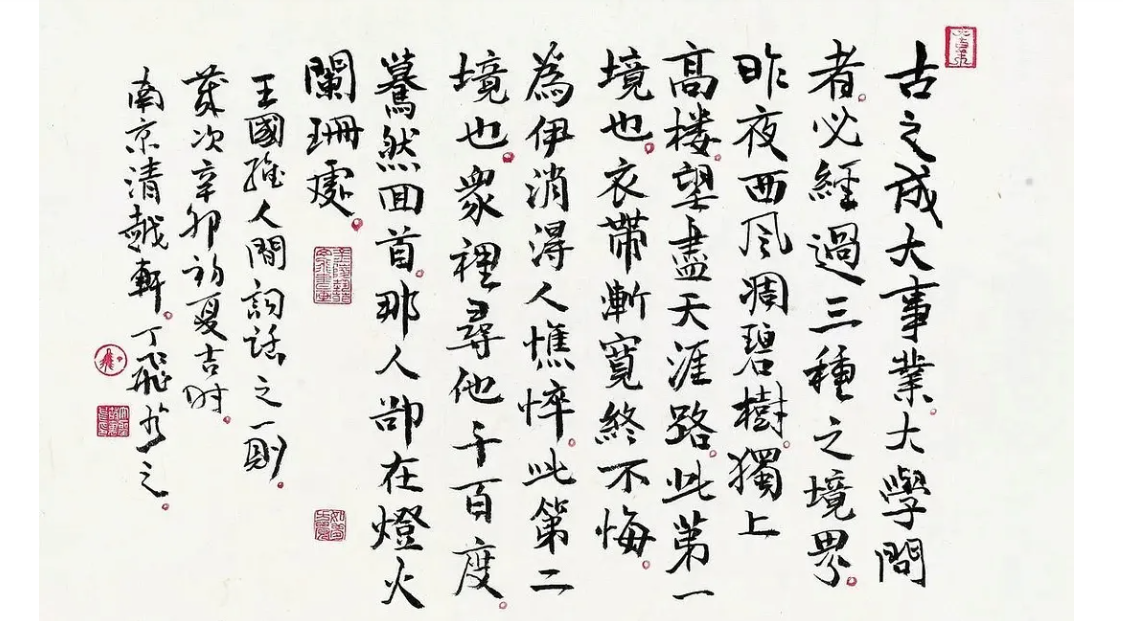 古之成大事業大學問
者必經過三種之境界
昨夜西风凋碧樹獨上
高楼望盡天涯路此第一
境也衣帶漸寬終不悔
為伊消得人憔悴此第二
境也衆裡尋他千百度
驀然回首那人卻在燈火
闌珊處
王國維人間詞話之一則
歲次辛卯初夏吉时
南京清越軒丁飛書之